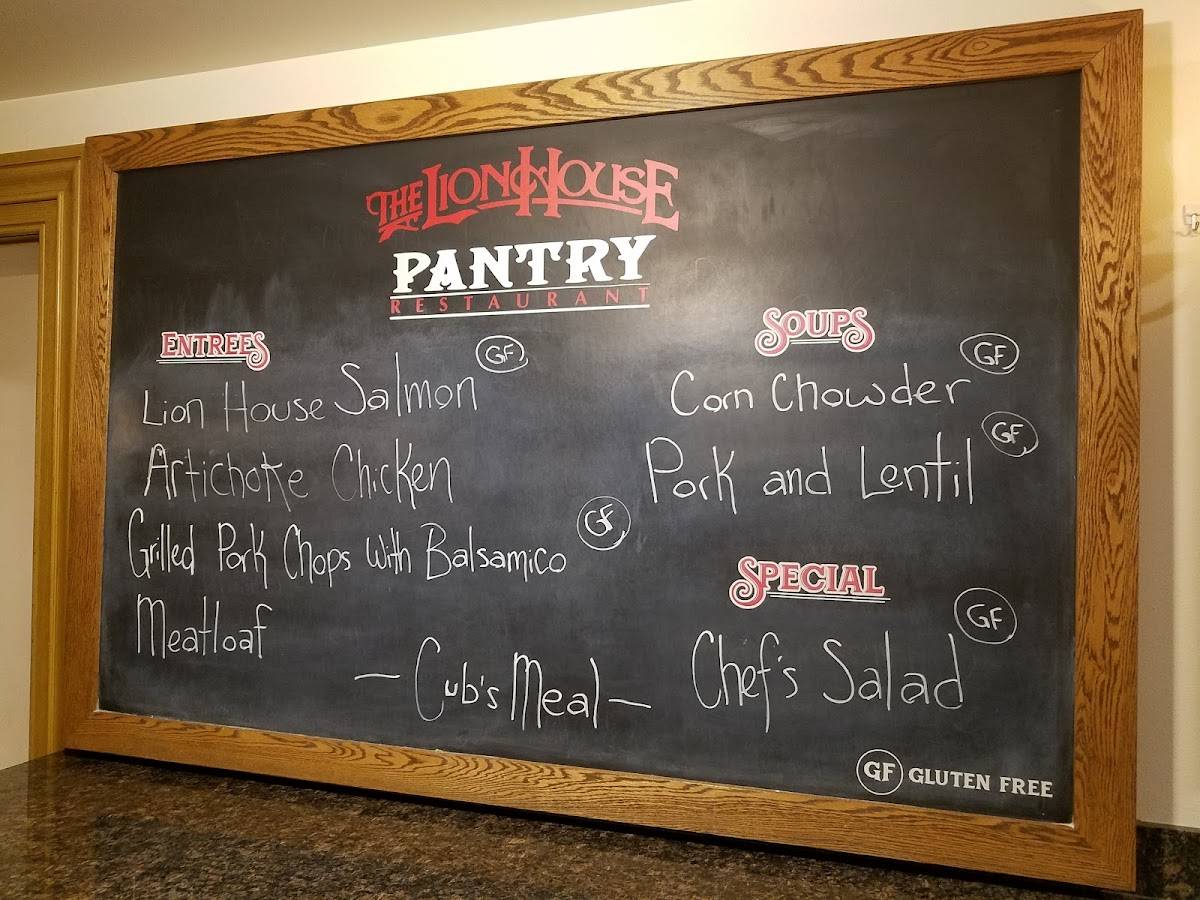 THE LION HOUSE
PANTRY
RESTAURANT
ENTREES
Lion House Salmon GF
Artichoke Chicken
Grilled Pork Chops with Balsamico GF
Meatloaf
— Cub's Meal —
SOUPS
Corn Chowder GF
Pork and Lentil GF
SPECIAL
Chef's Salad GF
GF GLUTEN FREE